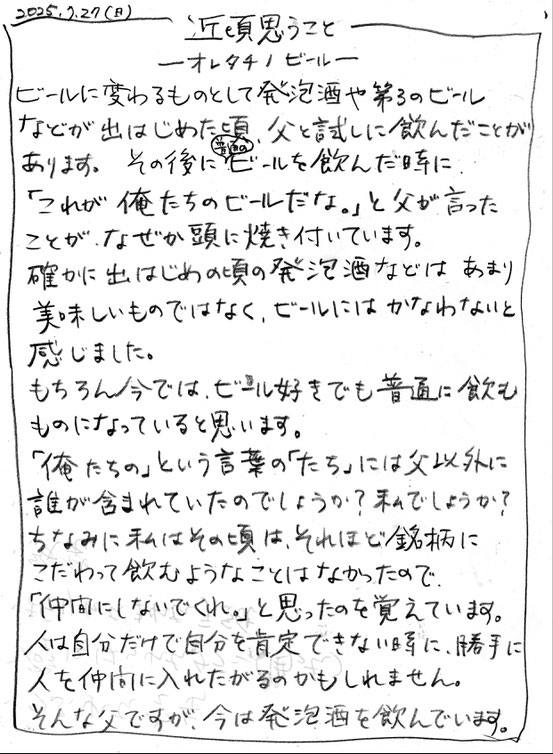 2025.7.27(日)
近頃思うこと
―オレタチノビール―
ビールに変わるものとして発泡酒や第3のビール
などが出はじめた頃、父と試しに飲んだことが
あります。その後に普通のビールを飲んだ時に
「これが俺たちのビールだな。」と父が言った
ことが、なぜか頭に焼き付いています。
確かに出はじめの頃の発泡酒などはあまり
美味しいものではなく、ビールにはかなわないと
感じました。
もちろん今では、ビール好きでも普通に飲む
ものになっていると思います。
「俺たちの」という言葉の「たち」には父以外に
誰が含まれていたのでしょうか?私でしょうか?
ちなみに私はその頃は、それほど銘柄に
こだわって飲むようなことはなかったので、
「仲間にしないでくれ。」と思ったのを覚えています。
人は自分だけで自分を肯定できない時に、勝手に
人を仲間に入れたがるのかもしれません。
そんな父ですが、今は発泡酒を飲んでいます。